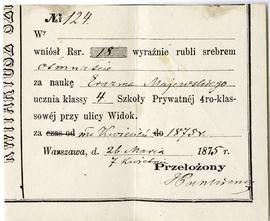 № 124
W
wniósł Rsr. 18 wyraźnie rubli srebrem
osmnaście
za naukę Erazma Majewskiego
ucznia klassy 4 Szkoły Prywatnéj 4ro-klas-
sowéj przy ulicy Widok.
za czas od Kwiecień do 1875 r.
Warszawa, d. 26 Marca 1875 r.
7 Kwietnia
Przełożony
KWITARIUSZ